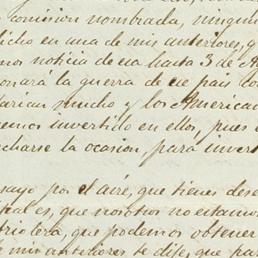 comision nombrada, ningun
dicho en una de mis anteriores, q
mos noticia de esa hasta 3 de A
onará la guerra de ese pais co
laricas mucho y los America
emos invertido en ellos, pues e
charse la ocasion, para inver
sayo por el aire, que tienes dese
pal es, que nosotros no estamos
briolera, que podemos obtener
mis anteriores te dije, que par